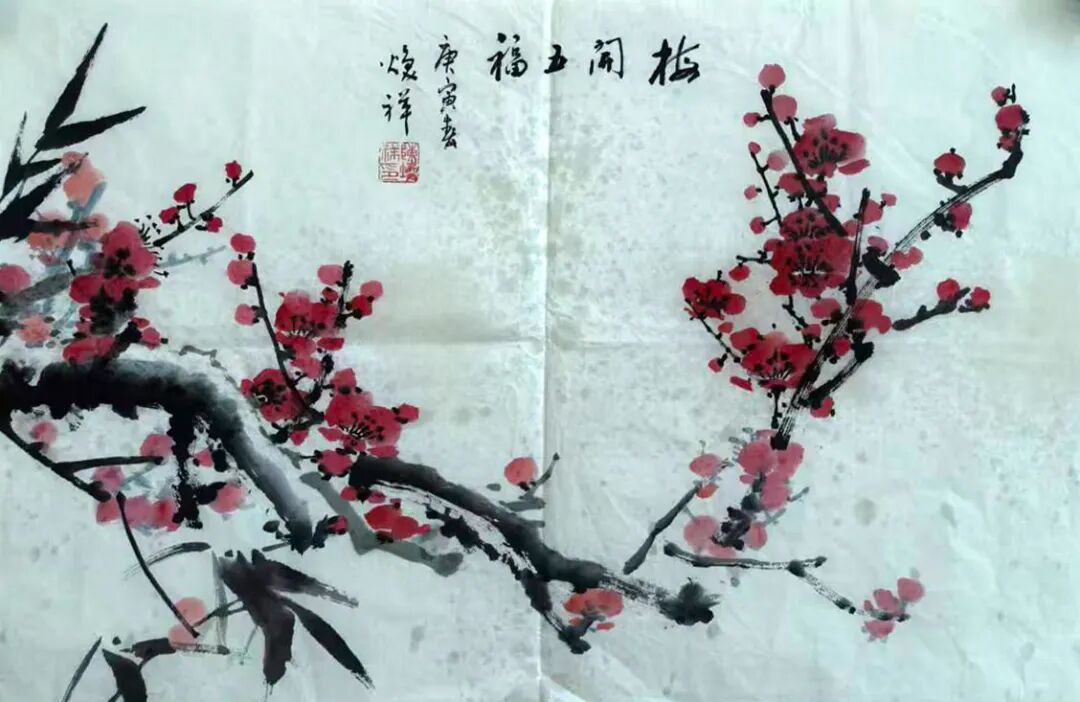 梅開五福
庚寅春
煥祥